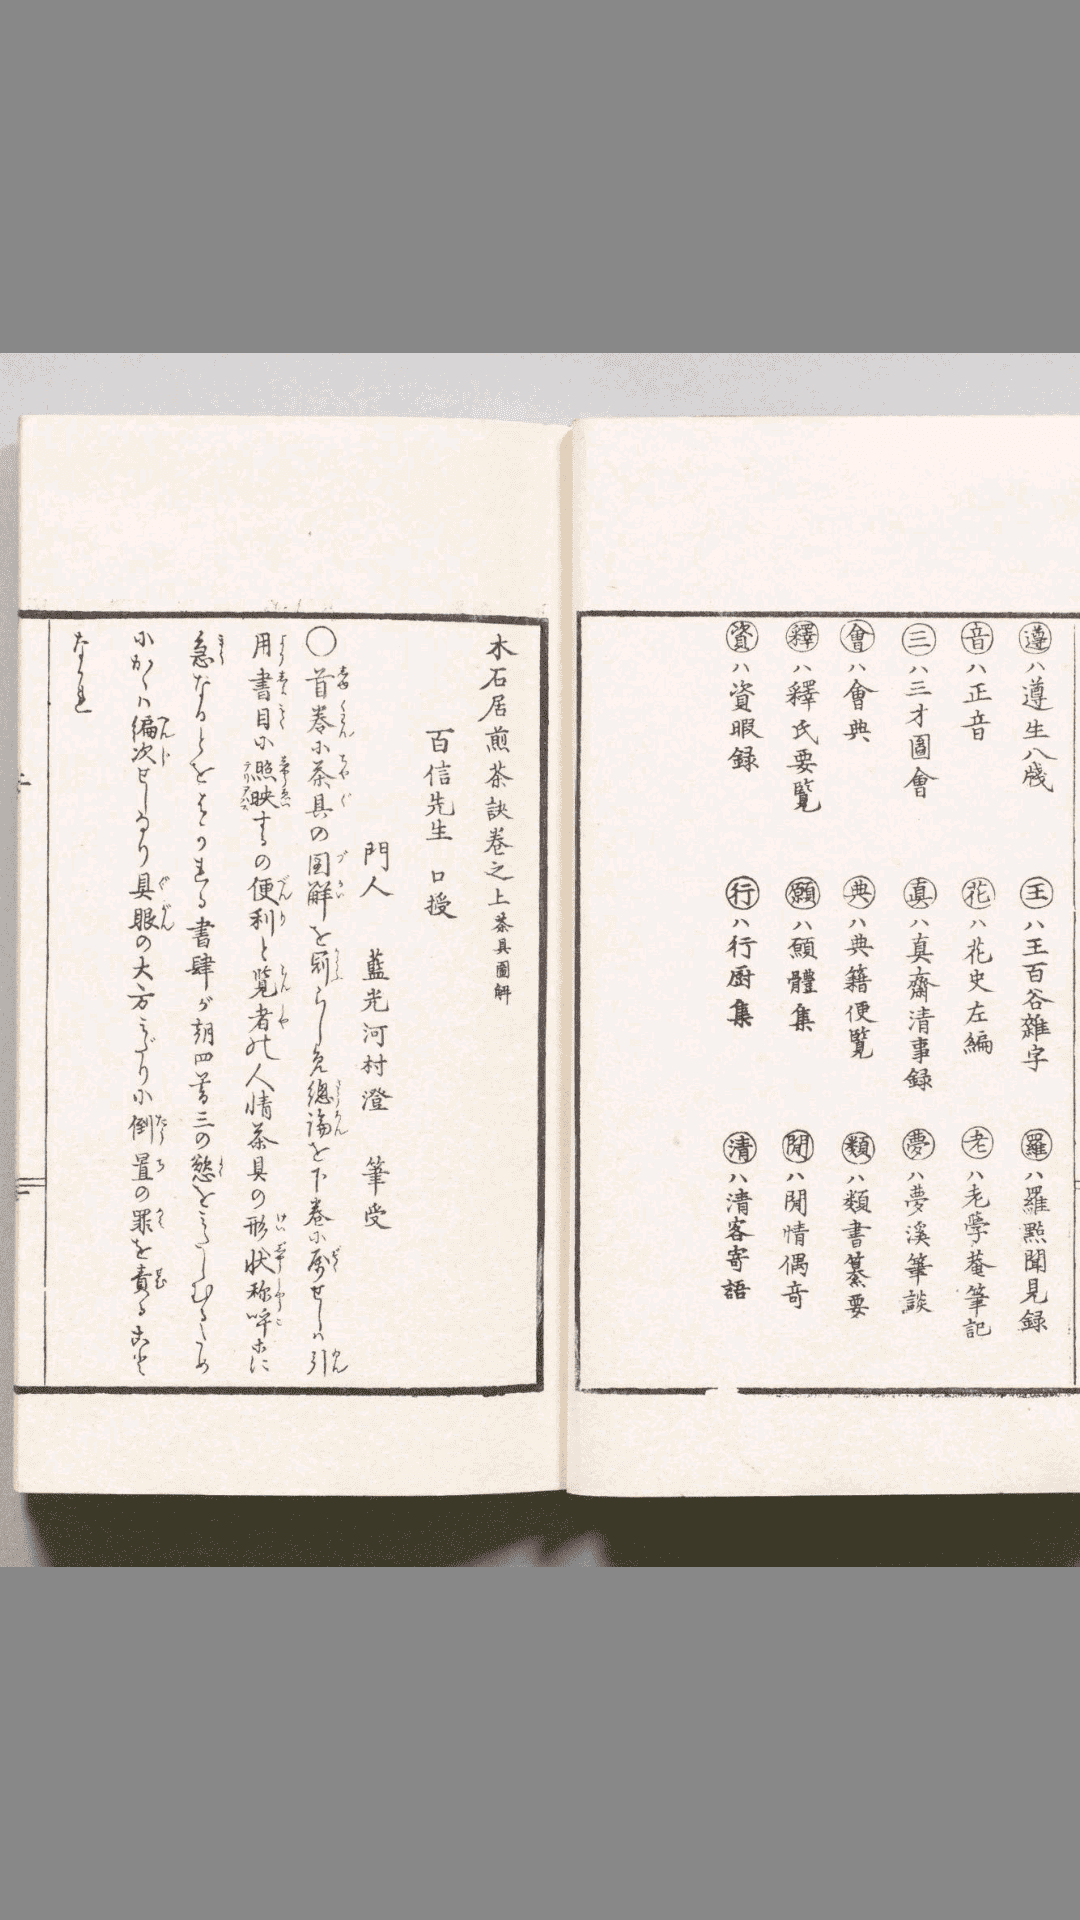 遵ハ遵生八牋　王ハ王百谷雜字　羅ハ羅點聞見録
音ハ正音　花ハ花史左編　老ハ老學菴筆記
三ハ三才圖會　真ハ真齋清事録　夢ハ夢溪筆談
會ハ會典　典ハ典籍便覧　類ハ類書纂要
釋ハ釋氏要覧　願ハ願體集　閒ハ閒情偶竒
資ハ資暇録　行ハ行厨集　清ハ清客寄語
木石居煎茶訣巻之上 茶具圖解
百信先生　口授
門人　藍光河村澄　筆受
〇首巻小茶具の図解を せし 總論を下巻小属せしハ引
用書目小照映するの便利と覧者の人情茶具の形状称呼に
急なるとを る書肆が朝四暮三の慾を
小かゝハ編次せしなり具眼の大方 小倒置の罪を責る
なかれ